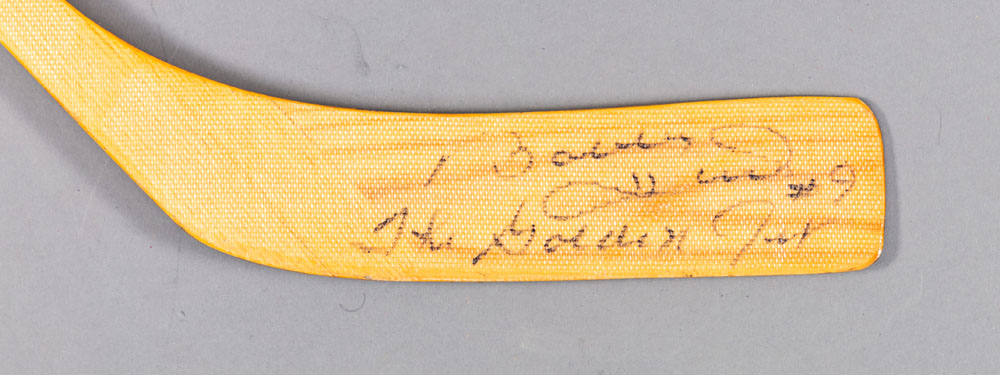 Bobby
Hull #9
The Golden Jet